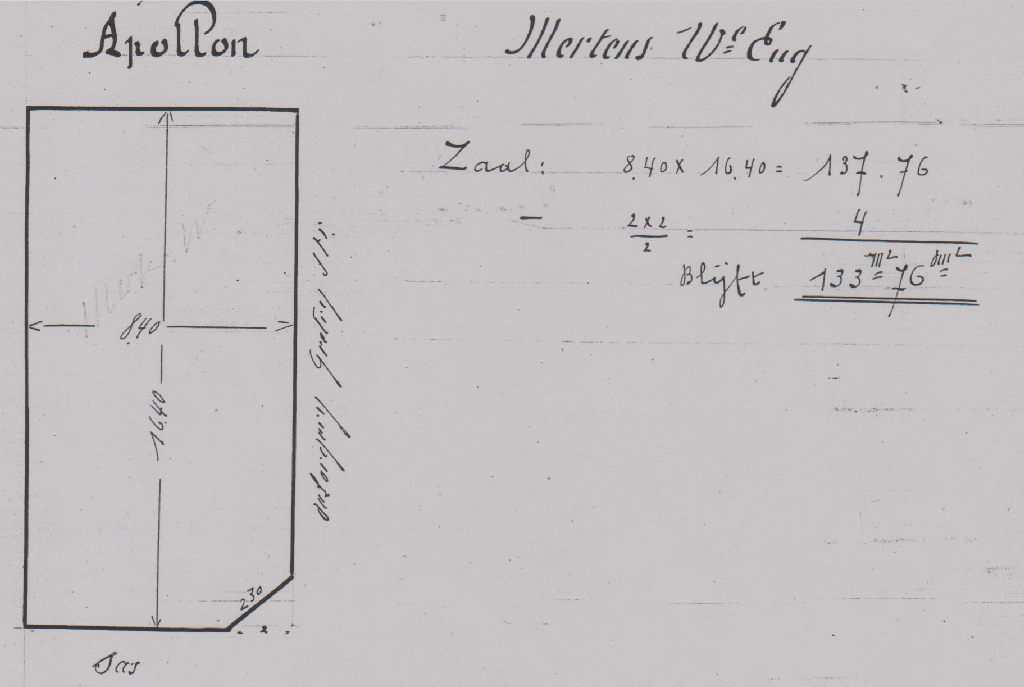 Apollon
Mertens We Eug
Zaal: 8.40 x 16.40 = 137.76
- 2 x 2 / 2 = 4
Blijft 133 m² 76 dm²
8.40
16.40
2.30
2
Sas